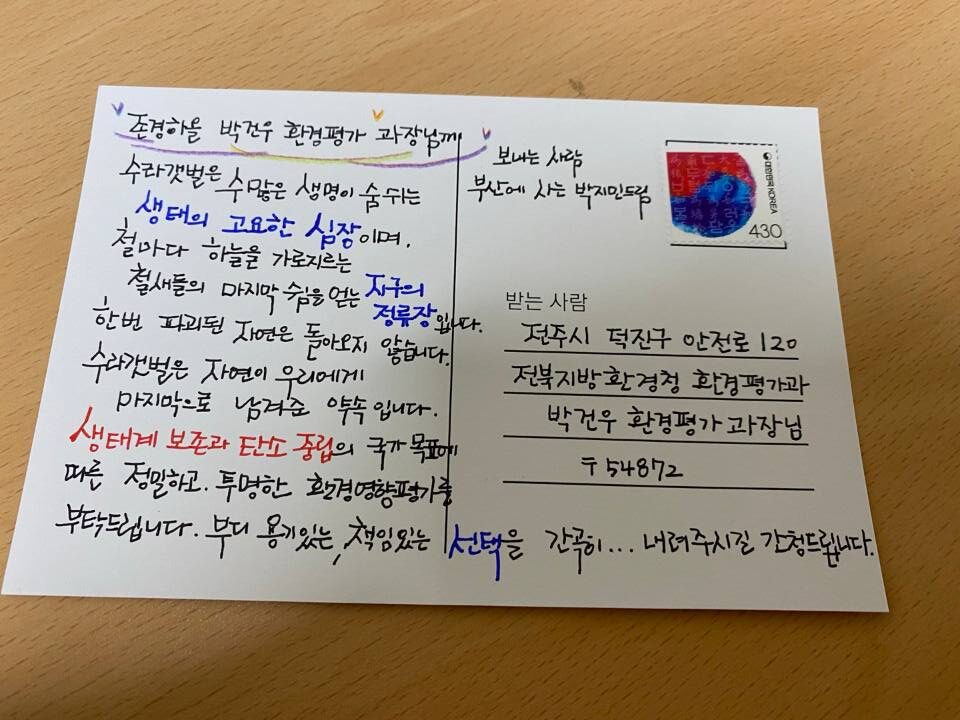 존경하을 박건우 환경평가 과장님께
수라갯벌은 수많은 생명이 숨쉬는
생태의 고요한 심장이며,
철마다 하늘을 가로지르는
철새들의 마지막 숨을 얻는 지구의
정류장입니다.
한번 파괴된 자연은 돌아오지 않습니다.
수라갯벌은 자연이 우리에게
마지막으로 남겨준 약속입니다.
생태계 보존과 탄소 중립의 국가 목표에
따른 정밀하고, 투명한 환경영향평가를
부탁드립니다. 부디 용기있는, 책임있는 선택을 간곡히... 내려주시길 간청드립니다.
보내는 사람
부산에 사는 박지민드림
대한민국 KOREA
430
받는 사람
전주시 덕진구 안전로 120
전북지방환경청 환경평가과
박건우 환경평가 과장님
〒54872